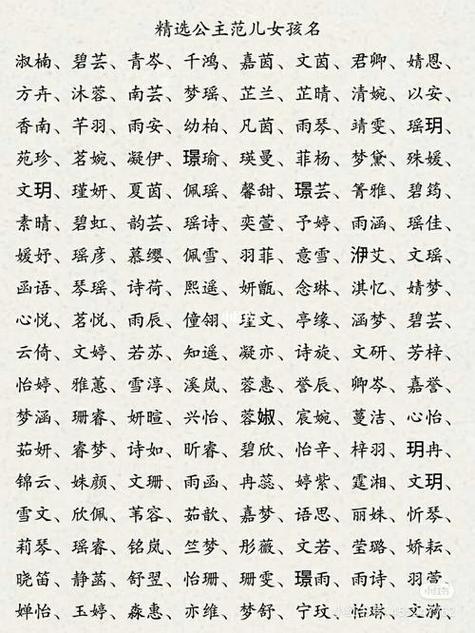 精选公主范儿女孩名
淑楠、碧芸、青岑、千鸿、嘉茵、文茵、君卿、婧恩、
方卉、沐蓉、南芸、梦瑶、芷兰、芷晴、清婉、以安、
香南、芊羽、雨安、幼柏、凡茵、雨琴、靖雯、瑶玥、
苑珍、茗婉、凝伊、璟瑜、瑛曼、菲杨、梦黛、殊媛、
文玥、瑾妍、夏茵、佩瑶、馨甜、璟芸、箐雅、碧筠、
素晴、碧虹、韵芸、瑶诗、奕萱、予婷、雨涵、瑶佳、
媛妤、瑶彦、慕缨、佩雪、羽菲、意雪、洢艾、文瑶、
函语、琴瑶、诗荷、熙遥、妍甑、念琳、淇忆、婧梦、
心悦、茗悦、雨辰、僮翎、文、亭缘、涵梦、碧芸、
云倚、文婷、若苏、知遥、凝亦、诗旋、文研、芳梓、
怡婷、雅蕙、雪淳、溪岚、蓉惠、誉辰、卿岑、嘉誉、
梦涵、珊睿、妍暄、兴怡、蓉婌、宸婉、蔓洁、心怡、
茹妍、睿梦、诗如、昕睿、碧欣、怡辛、梓羽、玥冉、
锦云、姝颜、文珊、雨函、冉蕊、婷紫、霆湘、文玥、
雪文、欣佩、苇容、茹歆、嘉梦、语思、丽姝、忻琴、
莉琴、瑶睿、铭岚、竺梦、彤薇、文若、莹璐、娇耘、
晓笛、静菡、舒翌、怡珊、珊雯、璟雨、雨诗、羽
小红书
婵怡、玉婷、淼惠、亦维、梦舒、宁玟、怡琪、文